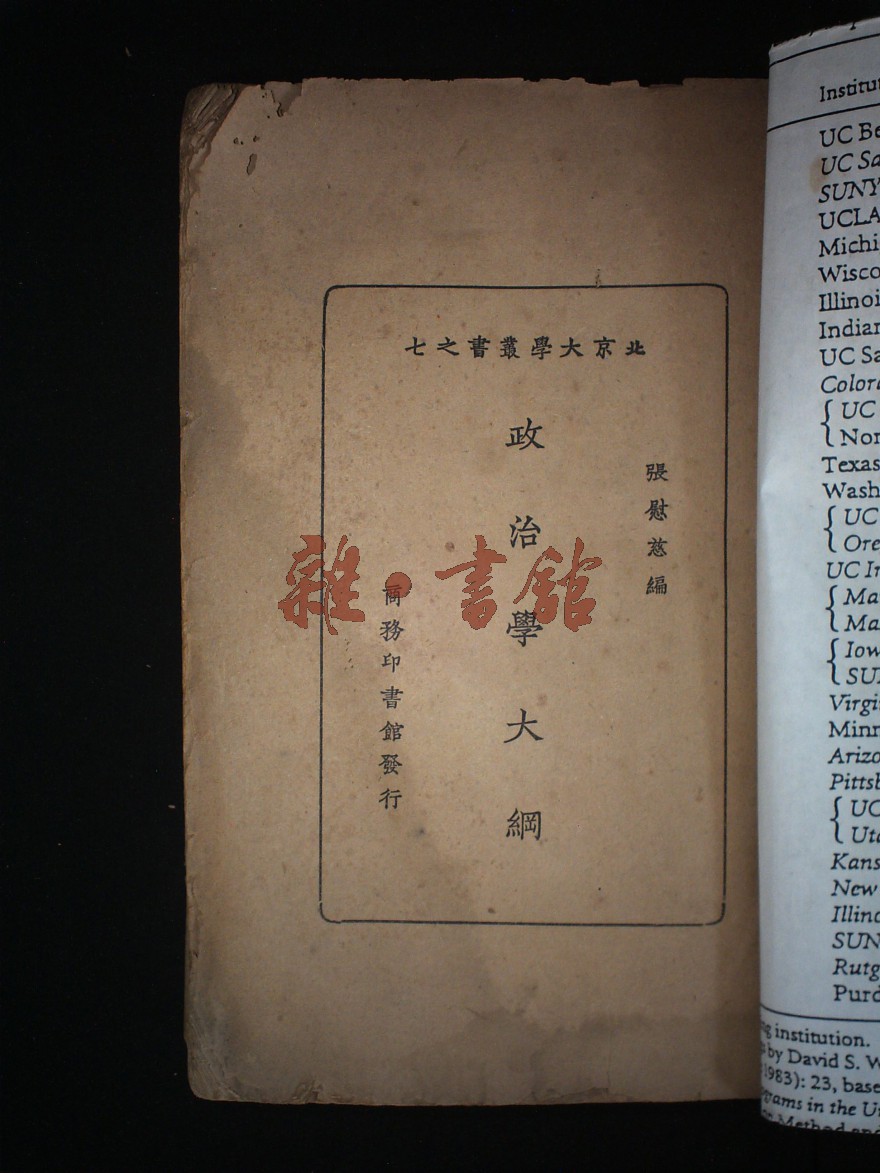 北京大學叢書之七
張慰慈編
政治學大綱
商務印書館發行
雜·書館
Institu
UC Be
UC Sa
SUNY
UCLA
Michi
Wisco
Illinoi
Indian
UC Sa
Colora
UC
Nor
Texas
Wash
UC
Ore
UC Ir
Ma
Ma
Iow
SUN
Virgi
Minn
Arizo
Pittsb
UC
Uta
Kans
New
Illino
SUN
Rutg
Purd
ng institution.
by David S. W
1983): 23, base
grams in the U
Method and